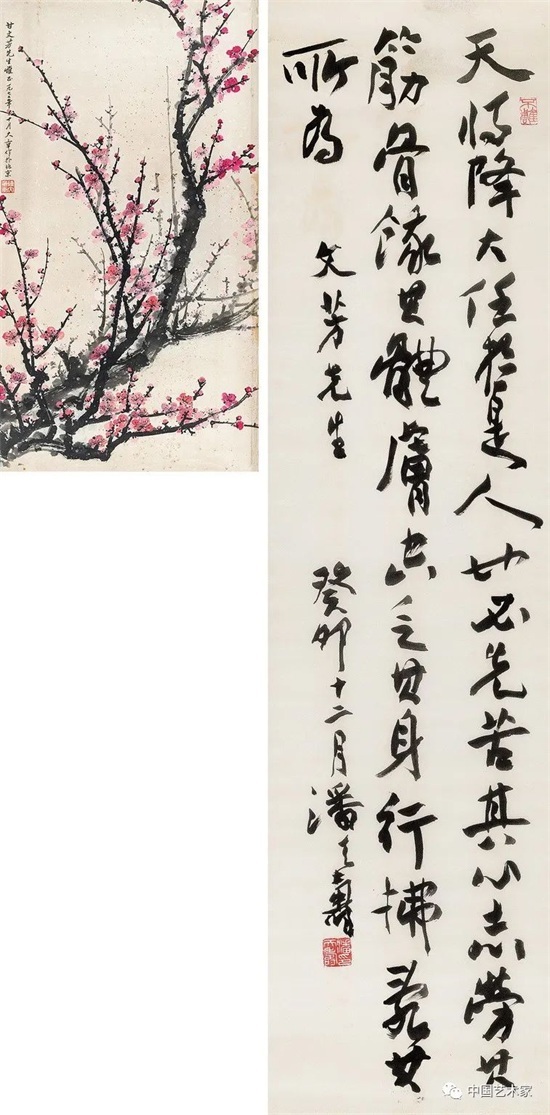 甘文芳先生雅正
天將降大任於是人也必先苦其心志勞其
筋骨餓其體膚空乏其身行拂亂其
所為
文芳先生
癸卯十二月潘天壽
中国艺术家